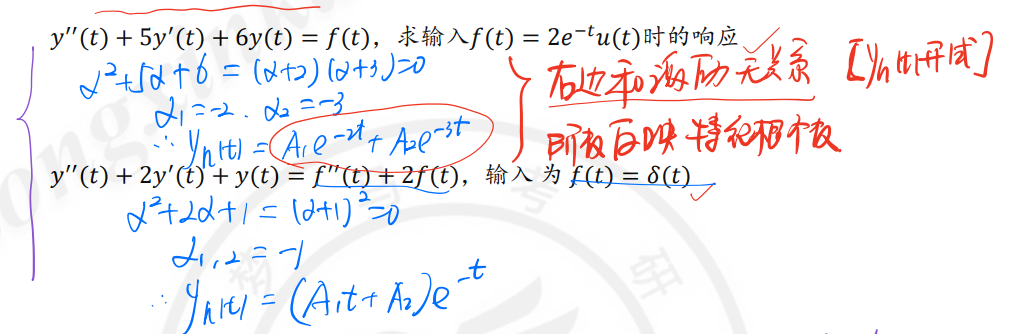 y′′(t) + 5y′(t) + 6y(t) = f(t)，求输入f(t) = 2e^{-t}u(t)时的响应
α²+5α+6 = (α+2)(α+3)=0
α₁=-2. α₂=-3
∴ yₕ(t) = A₁e^{-2t} + A₂e^{-3t}
右边和激励无关系 【yₕ(t)形式】
阶数反映特征根个数
y′′(t) + 2y′(t) + y(t) = f′′(t) + 2f(t)，输入为 f(t) = δ(t)
α²+2α+1 = (α+1)²=0
α₁,₂ = -1
∴ yₕ(t) = (A₁t+A₂)e^{-t}